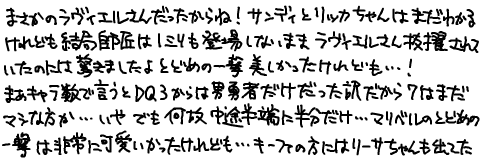 まさかのラヴィエルさんだったからね！サンディとリッカちゃんはまだわかる
けれども結局師匠は1ミリも登場しないままラヴィエルさん抜擢されて
いたのには驚きましたよとどめの一撃美しかったけれども…！
まあキャラ数で言うとDQ3からは男勇者だけだった訳だから7はまだ
マシな方か…いや でも何故中途半端に半分だけ…マリベルのとどめの
一撃は非常に可愛いかったけれども…キーファの方にはリーサちゃんも出てた